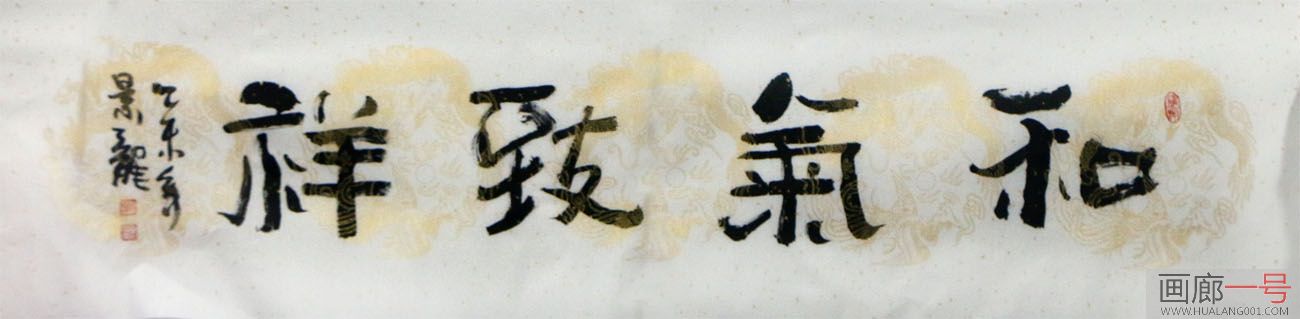 和氣致祥
乙未年
景
画廊一号
WWW.HUALANG001.COM